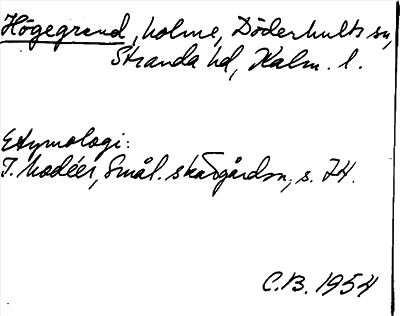 Högegrund, holme, Döderhults sn,
Stranda hd, Kalm. l.
Etymologi:
I. Modéer, Smål. skärgårdsn, s. 74.
C.B. 1954